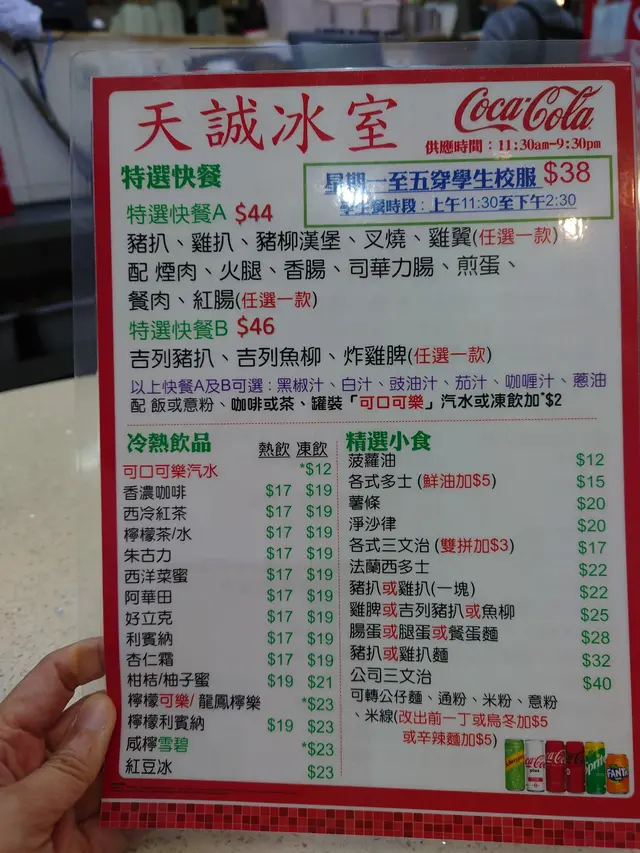 天誠冰室
Coca-Cola
供應時間：11:30am-9:30pm
特選快餐
星期一至五穿學生校服 $38
學生餐時段：上午11:30至下午2:30
特選快餐A $44
豬扒、雞扒、豬柳漢堡、叉燒、雞翼(任選一款)
配 煙肉、火腿、香腸、司華力腸、煎蛋、
餐肉、紅腸(任選一款)
特選快餐B $46
吉列豬扒、吉列魚柳、炸雞脾(任選一款)
以上快餐A及B可選：黑椒汁、白汁、豉油汁、茄汁、咖喱汁、蔥油
配 飯或意粉、咖啡或茶、罐裝「可口可樂」汽水或凍飲加*$2
冷熱飲品 熱飲 凍飲
可口可樂汽水 *$12
香濃咖啡 $17 $19
西冷紅茶 $17 $19
檸檬茶/水 $17 $19
朱古力 $17 $19
西洋菜蜜 $17 $19
阿華田 $17 $19
好立克 $17 $19
利賓納 $17 $19
杏仁霜 $17 $19
柑桔/柚子蜜 $19 $21
檸檬可樂/ 龍鳳檸樂 *$23
檸檬利賓納 $19 $23
咸檸雪碧 *$23
紅豆冰 $23
精選小食
菠蘿油 $12
各式多士 (鮮油加$5) $15
薯條 $20
淨沙律 $20
各式三文治 (雙拼加$3) $17
法蘭西多士 $22
豬扒或雞扒(一塊) $22
雞脾或吉列豬扒或魚柳 $25
腸蛋或腿蛋或餐蛋麵 $28
豬扒或雞扒麵 $32
公司三文治 $40
可轉公仔麵、通粉、米粉、意粉
、米線(改出前一丁或烏冬加$5
或辛辣麵加$5)
Coca-Cola
Sprite
FANTA